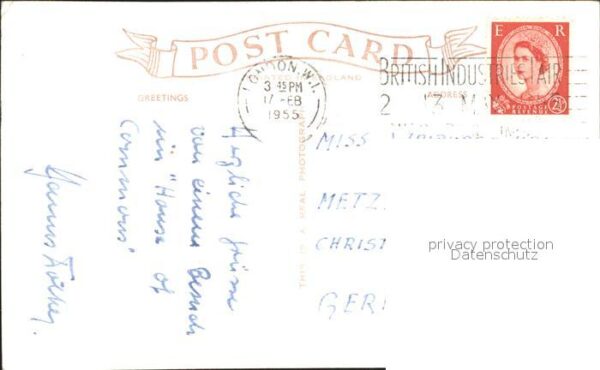 POST CARD
GREETINGS
ADDRESS
LONDON. W.1.
3 45 PM
17 FEB
1955
BRITISH INDUSTRIES FAIR
2 13 MA
E R
POSTAGE
REVENUE
2½
THIS IS A REAL PHOTOGRAPH
Herzliche Grüsse
von einem Besuch
im "House of
Commons"
MISS
METZ
CHRIST
GER
privacy protection
Datenschutz